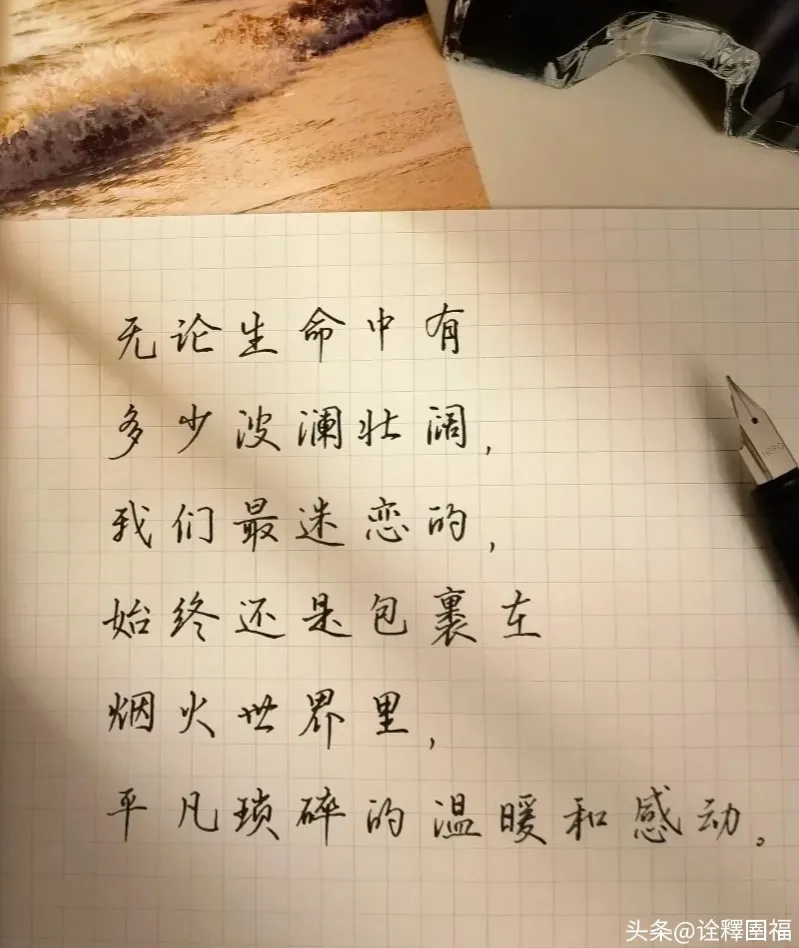 无论生命中有
多少波澜壮阔，
我们最迷恋的，
始终还是包裹在
烟火世界里，
平凡琐碎的温暖和感动。
头条@诠釋囯福